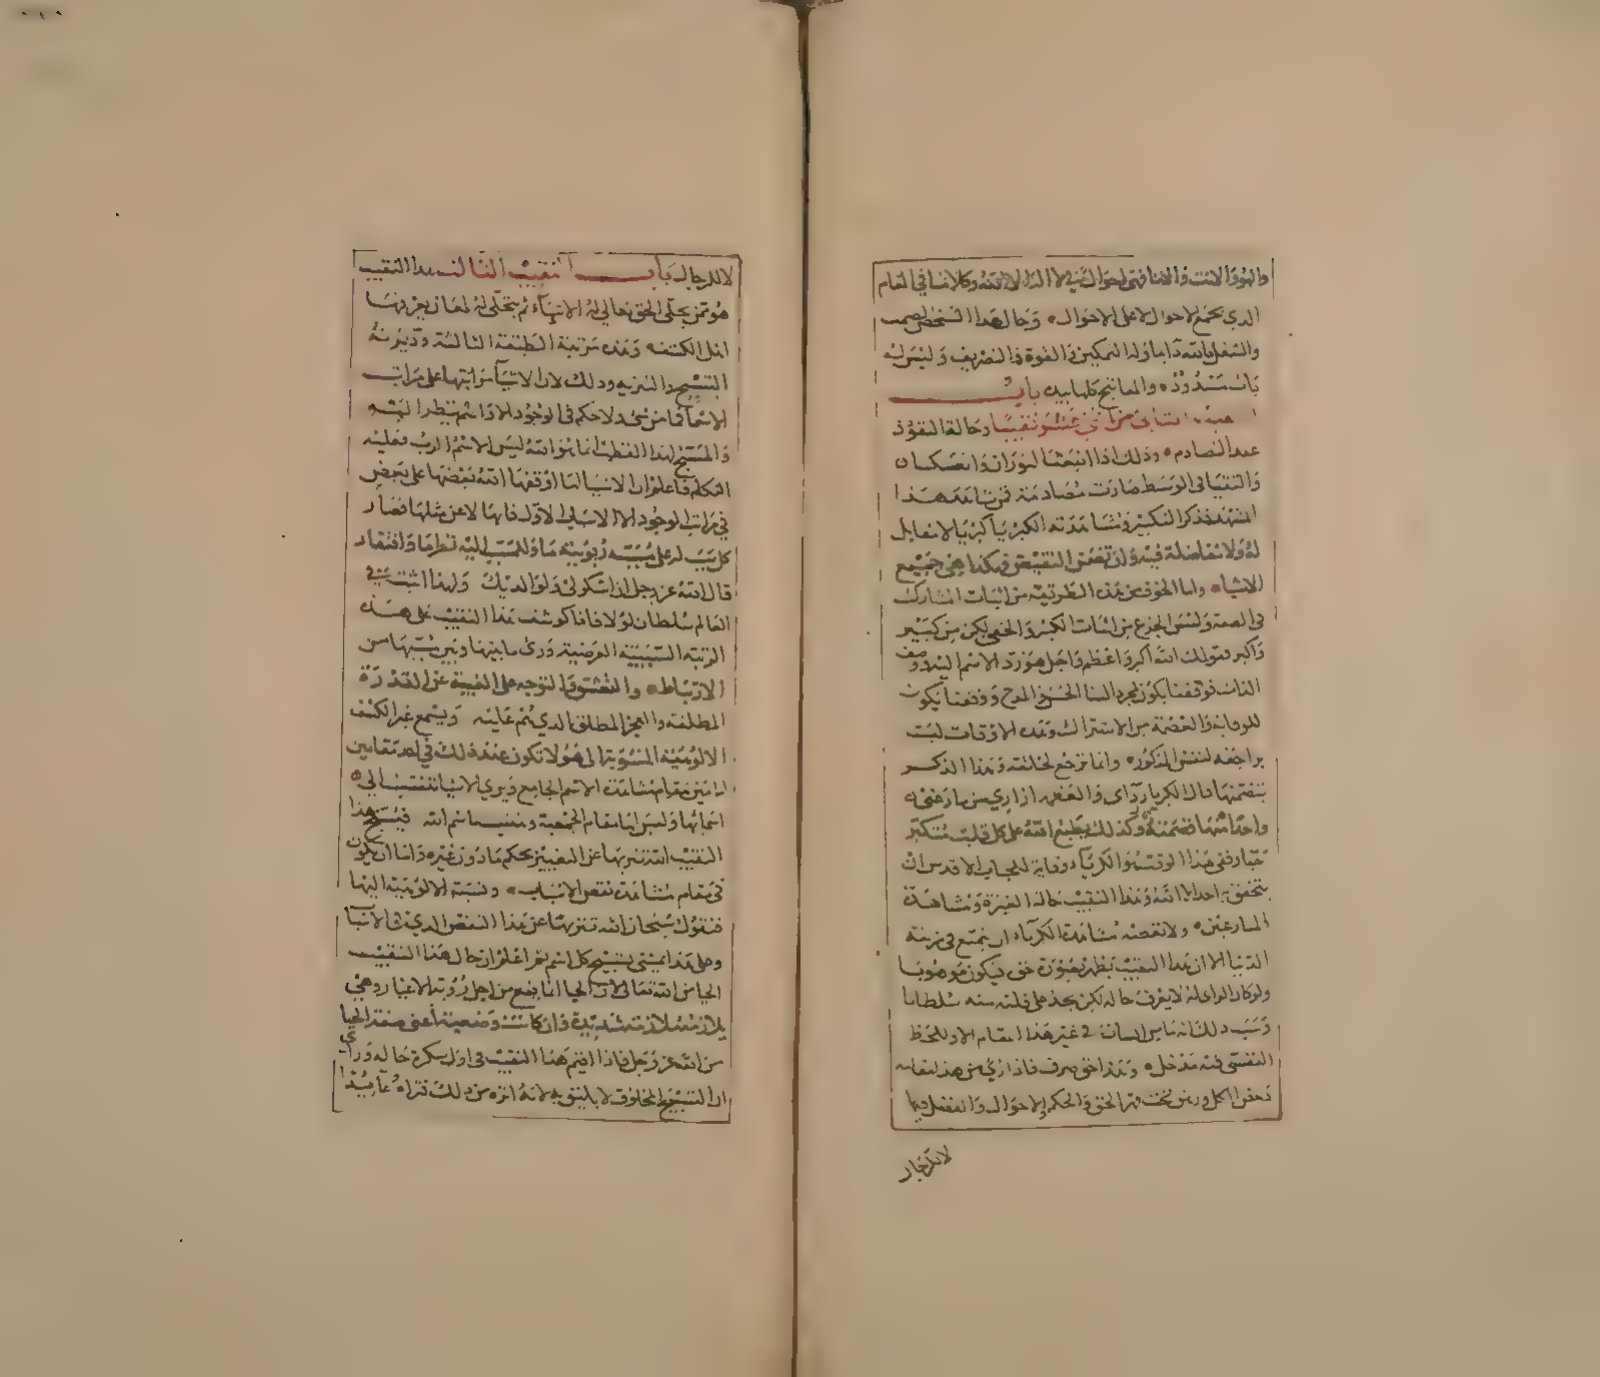 والهو والانت والانا فهى احوال في لا اله الا الله وكلامنا في المقام
الذي يجمع الاحوال لا على الاحوال وحال هذا الشخص الصمت
والشغل بالله دايما وله التمكين والقوة في التصريف وليس له
باب مسدود والمفاتيح كلها بيده باب
الثاني من اثني عشر نقيبا وحالة النفوذ
عند التصادم وذلك اذا انبعثا لنوران وانعكسان
والتقيا في الوسط صارت مصادمة فمن شاهد هذا
المشهد فذكر التكبير ومشاهدته الكبريا لا تقابل
له ولا مفاضلة فيه وان تضمن النقيض فهكذا هي جميع
الاشياء واما الخوف من هذه الطريقة من اثبات المشارك
في الصفة وليس الجزع من اثبات الكبير والخفي لكن من كبير
واكبر فقولك الله اكبر واعظم واجل هو رد الاسم اليه ووصف
الذات فوقتا يكون لمجرد الثنا الحسن والمدح ووقتا يكون
للوقاية والعصمة من الاشتراك وهذه الاوقات ليست
براجعة لنفس المذكور وانما ترجع لخلقه وهذا الذكر
يتضمنها قال الكبريا ردآى والعظمه ازاري من نازعني
واحدا منهما قصمته وكذلك يطبع الله على كل قلب متكبر
جبار ففي هذا الوقت هو الكبرياء وقاية للجناب الاقدس ان
يتحقق به احد الا الله وهذا النقيب حاله الغيرة ومشاهدة
المنازعين ولا نقصته مشاهدة الكبرياء ان يتمتع في زينة
الدنيا الا ان هذا النقيب يظهر بصورة حق فيكون موهوبا
ولو كان الراي له لا يعرف حاله لكن يجد على قلبه منه سلطانا
وسبب ذلك انه ما من انسان في غير هذا المقام الا وللحظ
النفسي فيه مدخل وهذا حق صرف فاذا رأي من هذا مقامه
دهش الكل ورهن تحت قهر الحق والحكم للاحوال والفضل فيها
لا للرجال
لا للرجال باب النقيب الثالث هذا النقيب
هو ممن يجلى الحق تعالى له الاشياء ثم يتجلى له لمعان يعرفونها
اهل الكشف وهذه مرتبة الطبقة الثالثة
التسبيح والتنزيه وذلك لان الاشيآ مراتبها على مراتب
الاسما فما من شئ الا حكم في الوجود الا واسم ينظر اليه
والمسبح لهذا القطب انما هو الله ليس الاسم الرب فعليه
التكلم فاعلم ان الاشيا لما اوقفها الله بعضها على بعض
في مراتب الوجود الا الاسباب الاول فانها لا عن مثلها فصار
كل سبب له على مسببه ربوبية ما وللمسبب اليه تعرضا وافتقار
قال الله عز وجل ان اشكر لي ولوالديك ولهذا اثبت في
العالم سلطان لولا فاذا كوشف هذا النقيب على هذه
الرتبة السببية العرضية ورى ما بينها وبين سببها من
الارتباط والتعشق والتوجه على الغيبة عن القدرة
المطلقة والعجز المطلق الذي هم عليه ويسمع غير الكشف
الالوهية المنسوبة الى هولا تكون عنده ذلك في احد مقامين
اما من مقام مشاهدة الاسم الجامع فيرى الاشيا تفتقر الى
اسمائها وليس لها مقام الجمعية ومنيب اسم الله فيسبح هذا
النقيب الله تنزيها عن التغيير بحكم ما دون غيره واما ان يكون
في مقام مشاهدة نقص الاشيا ونسبة الالوهية اليها
فيقول سبحان الله تنزيها عن هذا النقص الذي في الاشيا
وعلى هذا يمشى تسبيح كل اسم ثم اعلم ان حال هذا النقيب
الحيا من الله تعالى لان الحيا انما يقع من اجل رؤية الاغيار وهى
يلازمه ملازمة شديدة وان كانت وضعية أعنى صفة الحيا
من الله عز وجل فاذا اقيم هذا النقيب في اول سكرة حاله ورأى
ان التسبيح المخلوق لا يليق به لانه انزه من ذلك فتراه